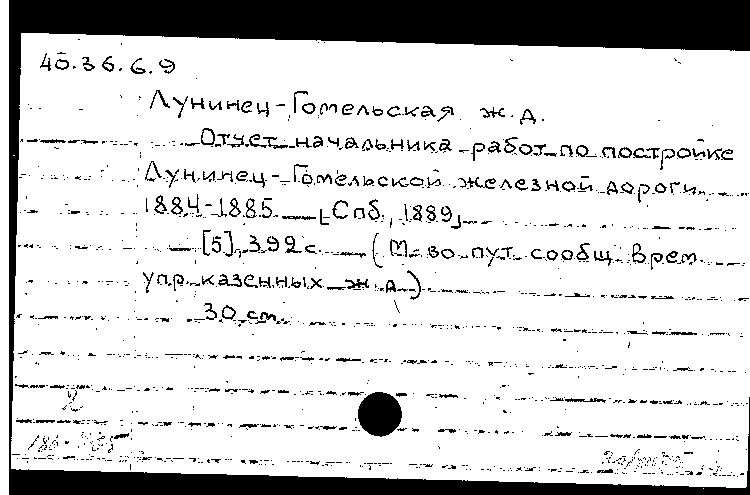 40.36.6.9
Лунинец-Гомельская ж.д.
Отчет начальника работ по постройке
Лунинец-Гомельской железной дороги.
1884-1885. — [Спб., 1889]
— [5], 392 с. — (М-во пут. сообщ. Врем.
упр. казенных ж.д.)
30 см.
2